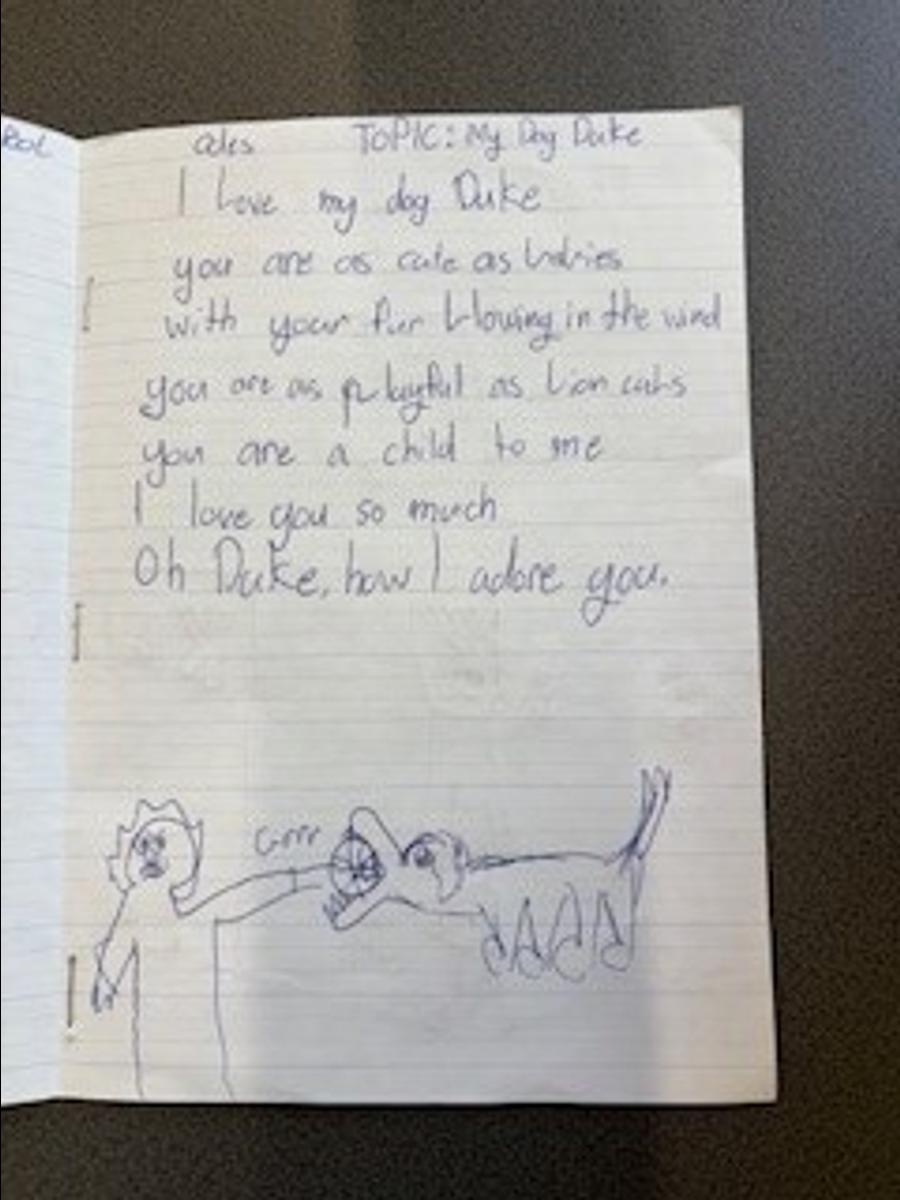 Odes TOPIC: My Dog Duke
I Love my dog Duke
you are as cute as babies
with your fur blowing in the wind
you are as playful as Lion cubs
you are a child to me
I love you so much
Oh Duke, how I adore you.
Grrr